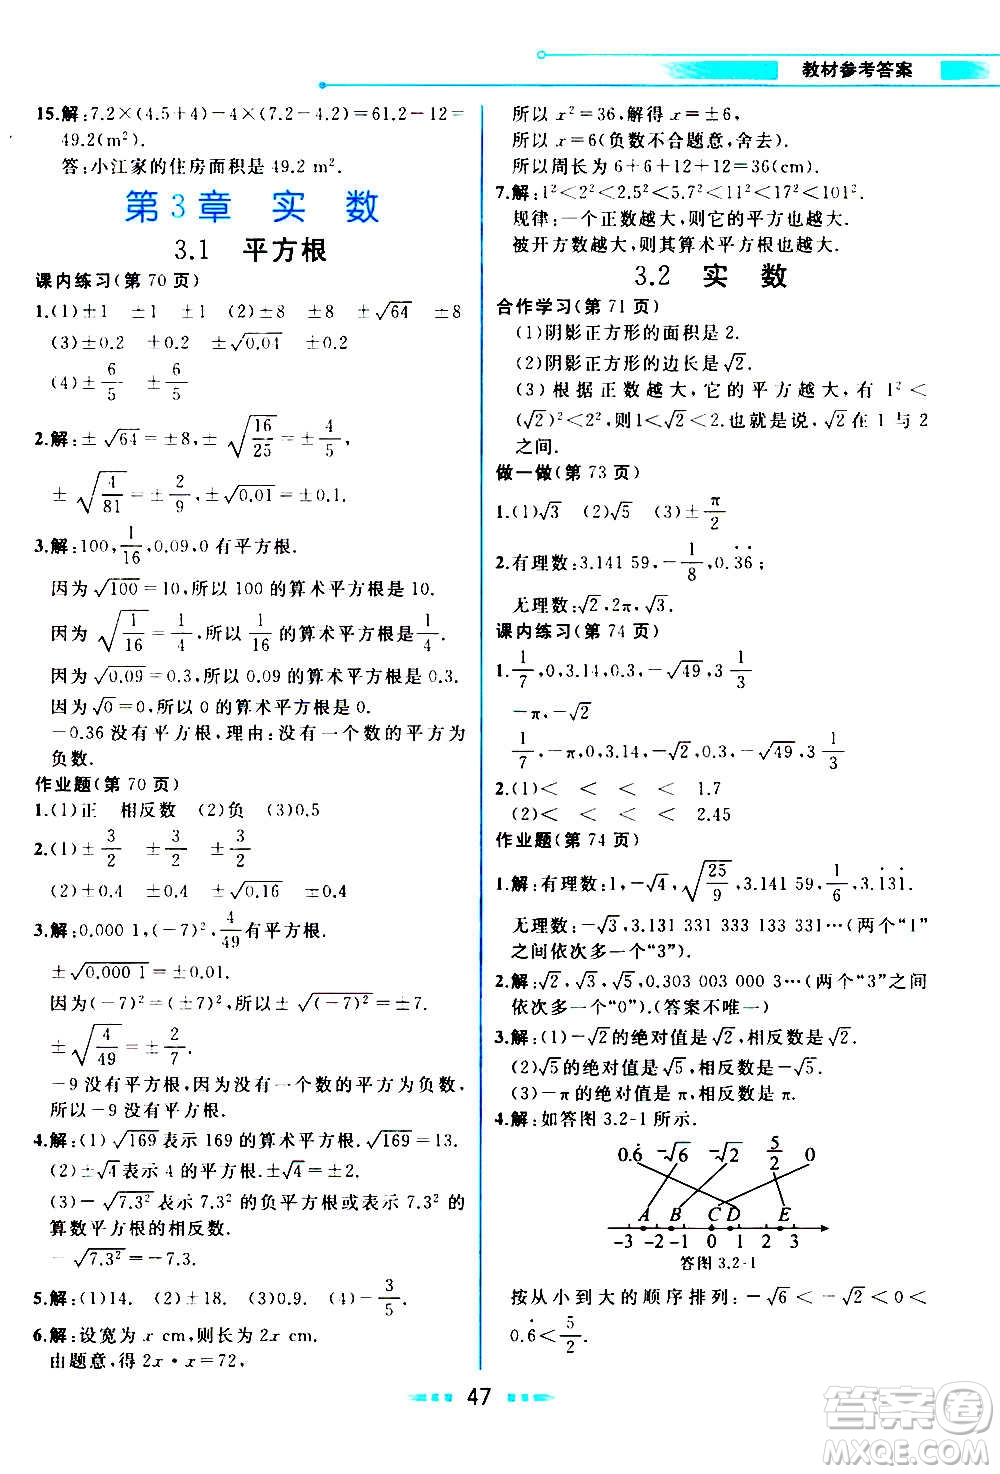 教材参考答案
15.解:7.2×(4.5+4)-4×(7.2-4.2)=61.2-12=
49.2(m²).
答:小江家的住房面积是 49.2 m².
第 3 章 实 数
3.1 平方根
课内练习(第 70 页)
1.(1)±1 ±1 (2)±8 ±√64 ±8
(3)±0.2 ±√0.04 ±0.2
(4)±6/5 ±6/5
2.解:±√64=±8,±√(16/25)=±4/5,
±√(4/81)=±2/9,±√0.01=±0.1.
3.解:100,1/16,0.09,0 有平方根.
因为√100=10,所以 100 的算术平方根是 10.
因为√(1/16)=1/4,所以1/16的算术平方根是1/4.
因为√0.09=0.3,所以 0.09 的算术平方根是 0.3.
因为√0=0,所以 0 的算术平方根是 0.
-0.36 没有平方根,理由:没有一个数的平方为
负数.
作业题(第 70 页)
1.(1)正 相反数 (2)负 (3)0.5
2.(1)±3/2 ±3/2 ±3/2
(2)±0.4 ±0.4 ±√0.16 ±0.4
3.解:0.000 1,(-7)²,4/49有平方根.
±√0.000 1=±0.01.
因为(-7)²=(±7)²,所以±√(-7)²=±7.
±√(4/49)=±2/7.
-9 没有平方根,因为没有一个数的平方为负数,
所以-9 没有平方根.
4.解:(1)√169表示 169 的算术平方根.√169=13.
(2)±√4表示 4 的平方根.±√4=±2.
(3)-√7.3²表示 7.3² 的负平方根或表示 7.3² 的
算数平方根的相反数.
-√7.3²=-7.3.
5.解:(1)14. (2)±18. (3)0.9. (4)-3/5.
6.解:设宽为 x cm,则长为 2x cm.
由题意,得 2x·x=72,
所以 x²=36,解得 x=±6,
所以 x=6(负数不合题意,舍去).
所以周长为 6+6+12+12=36(cm)
7.解:1²<2²<2.5²<5.7²<12²<17²<101².
规律:一个正数越大,则它的平方也越大.
被开方数越大,则其算术平方根也越大.
3.2 实 数
合作学习(第 71 页)
(1)阴影正方形的面积是 2.
(2)阴影正方形的边长是√2.
(3)根据正数越大,它的平方越大,有 1²<
(√2)²<2²,则 1<√2<2.也就是说,√2在 1 与 2
之间.
做一做(第 73 页)
1.(1)√3 (2)√5 (3)±π/2
2.有理数:3.141 59,-1/8,0.3̇6̇;
无理数:√2,2π,√3.
课内练习(第 74 页)
1.1/7,0,3.14,0.3,-√49,3 1/3
-π,-√2
1/7,-π,0,3.14,-√2,0.3,-√49,3 1/3
2.(1)< < < < 1.7
(2)< < < < 2.45
作业题(第 74 页)
1.解:有理数:1,-√4,√(25/9),3.141 59,1/6,3.1̇31̇.
无理数:-√5,3.131 331 333 133 331…(两个“1”
之间依次多一个“3”).
2.解:√2,√3,√5,0.303 003 000 3…(两个“3”之间
依次多一个“0”).(答案不唯一)
3.解:(1)-√2的绝对值是√2,相反数是√2.
(2)√5的绝对值是√5,相反数是-√5.
(3)-π的绝对值是π,相反数是π.
4.解:如答图 3.2-1 所示.
0.6̇ -√6 -√2 5/2 0
A B C D E
-3 -2 -1 0 1 2 3
答图 3.2-1
按从小到大的顺序排列:-√6<-√2<0<
0.6̇<5/2.
47
答案圈
MXQE.COM